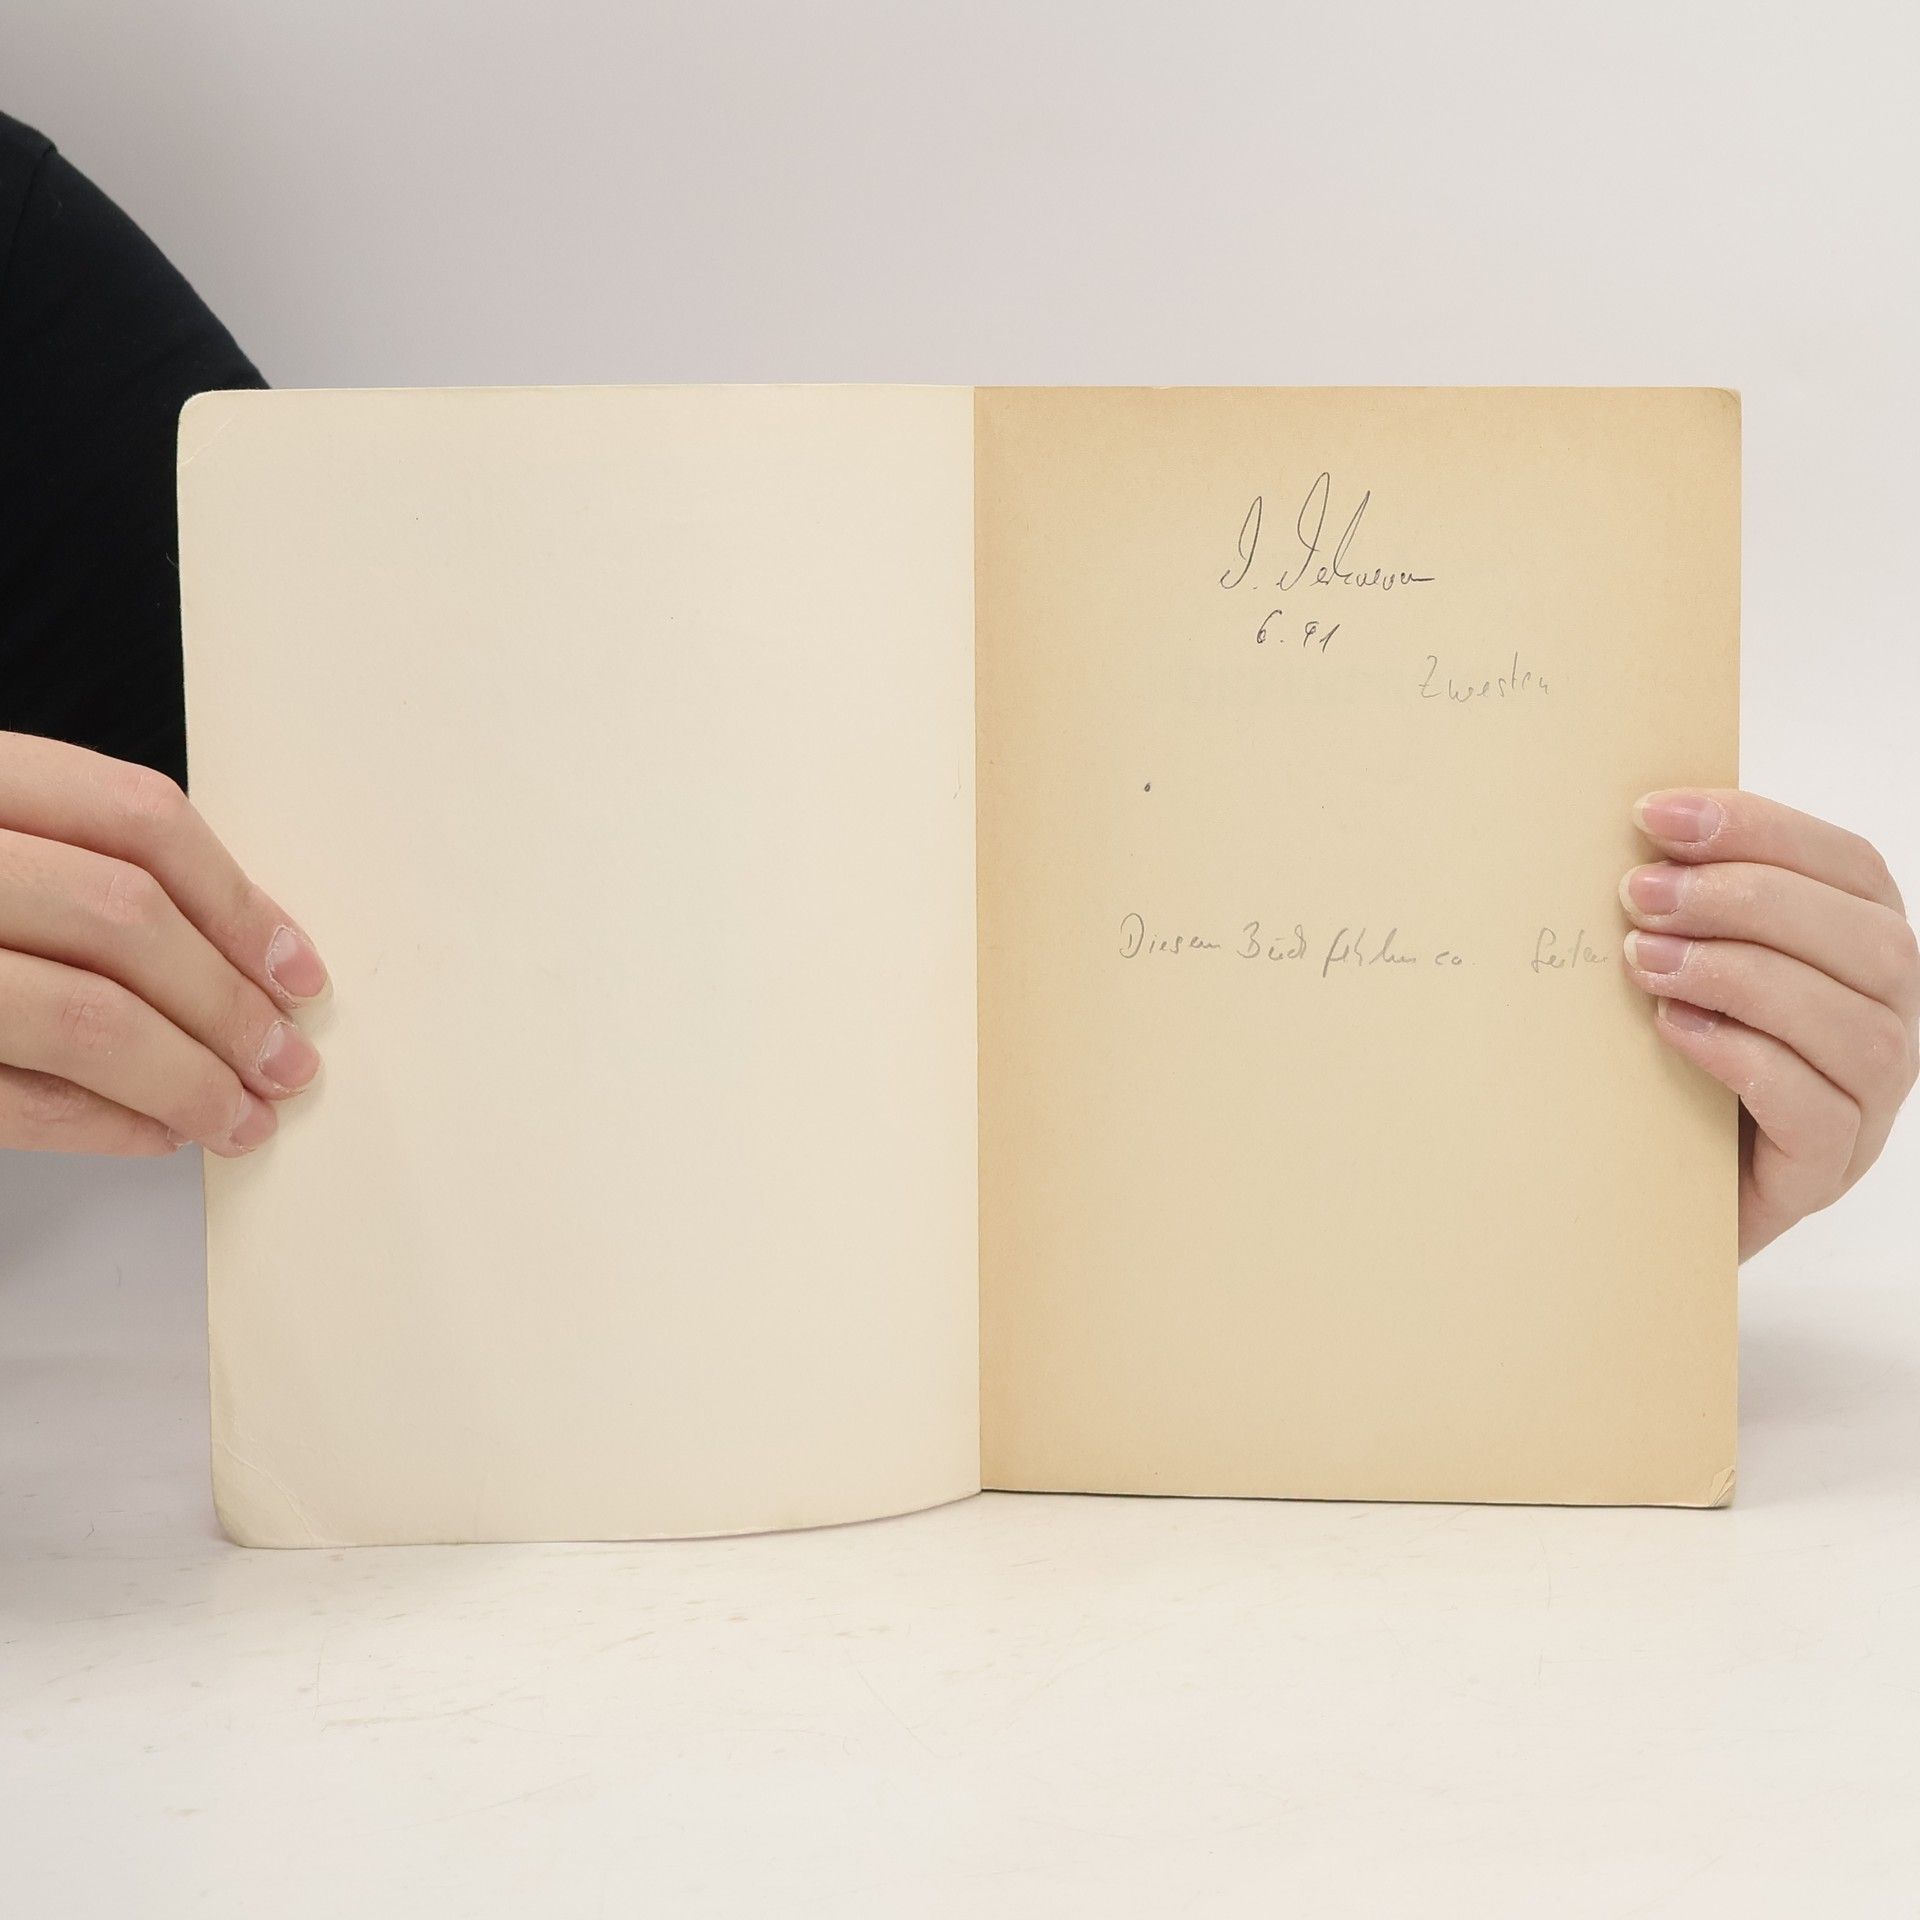 6. 91
Zwesten
Diesem Buch fehlen ca. Seiten